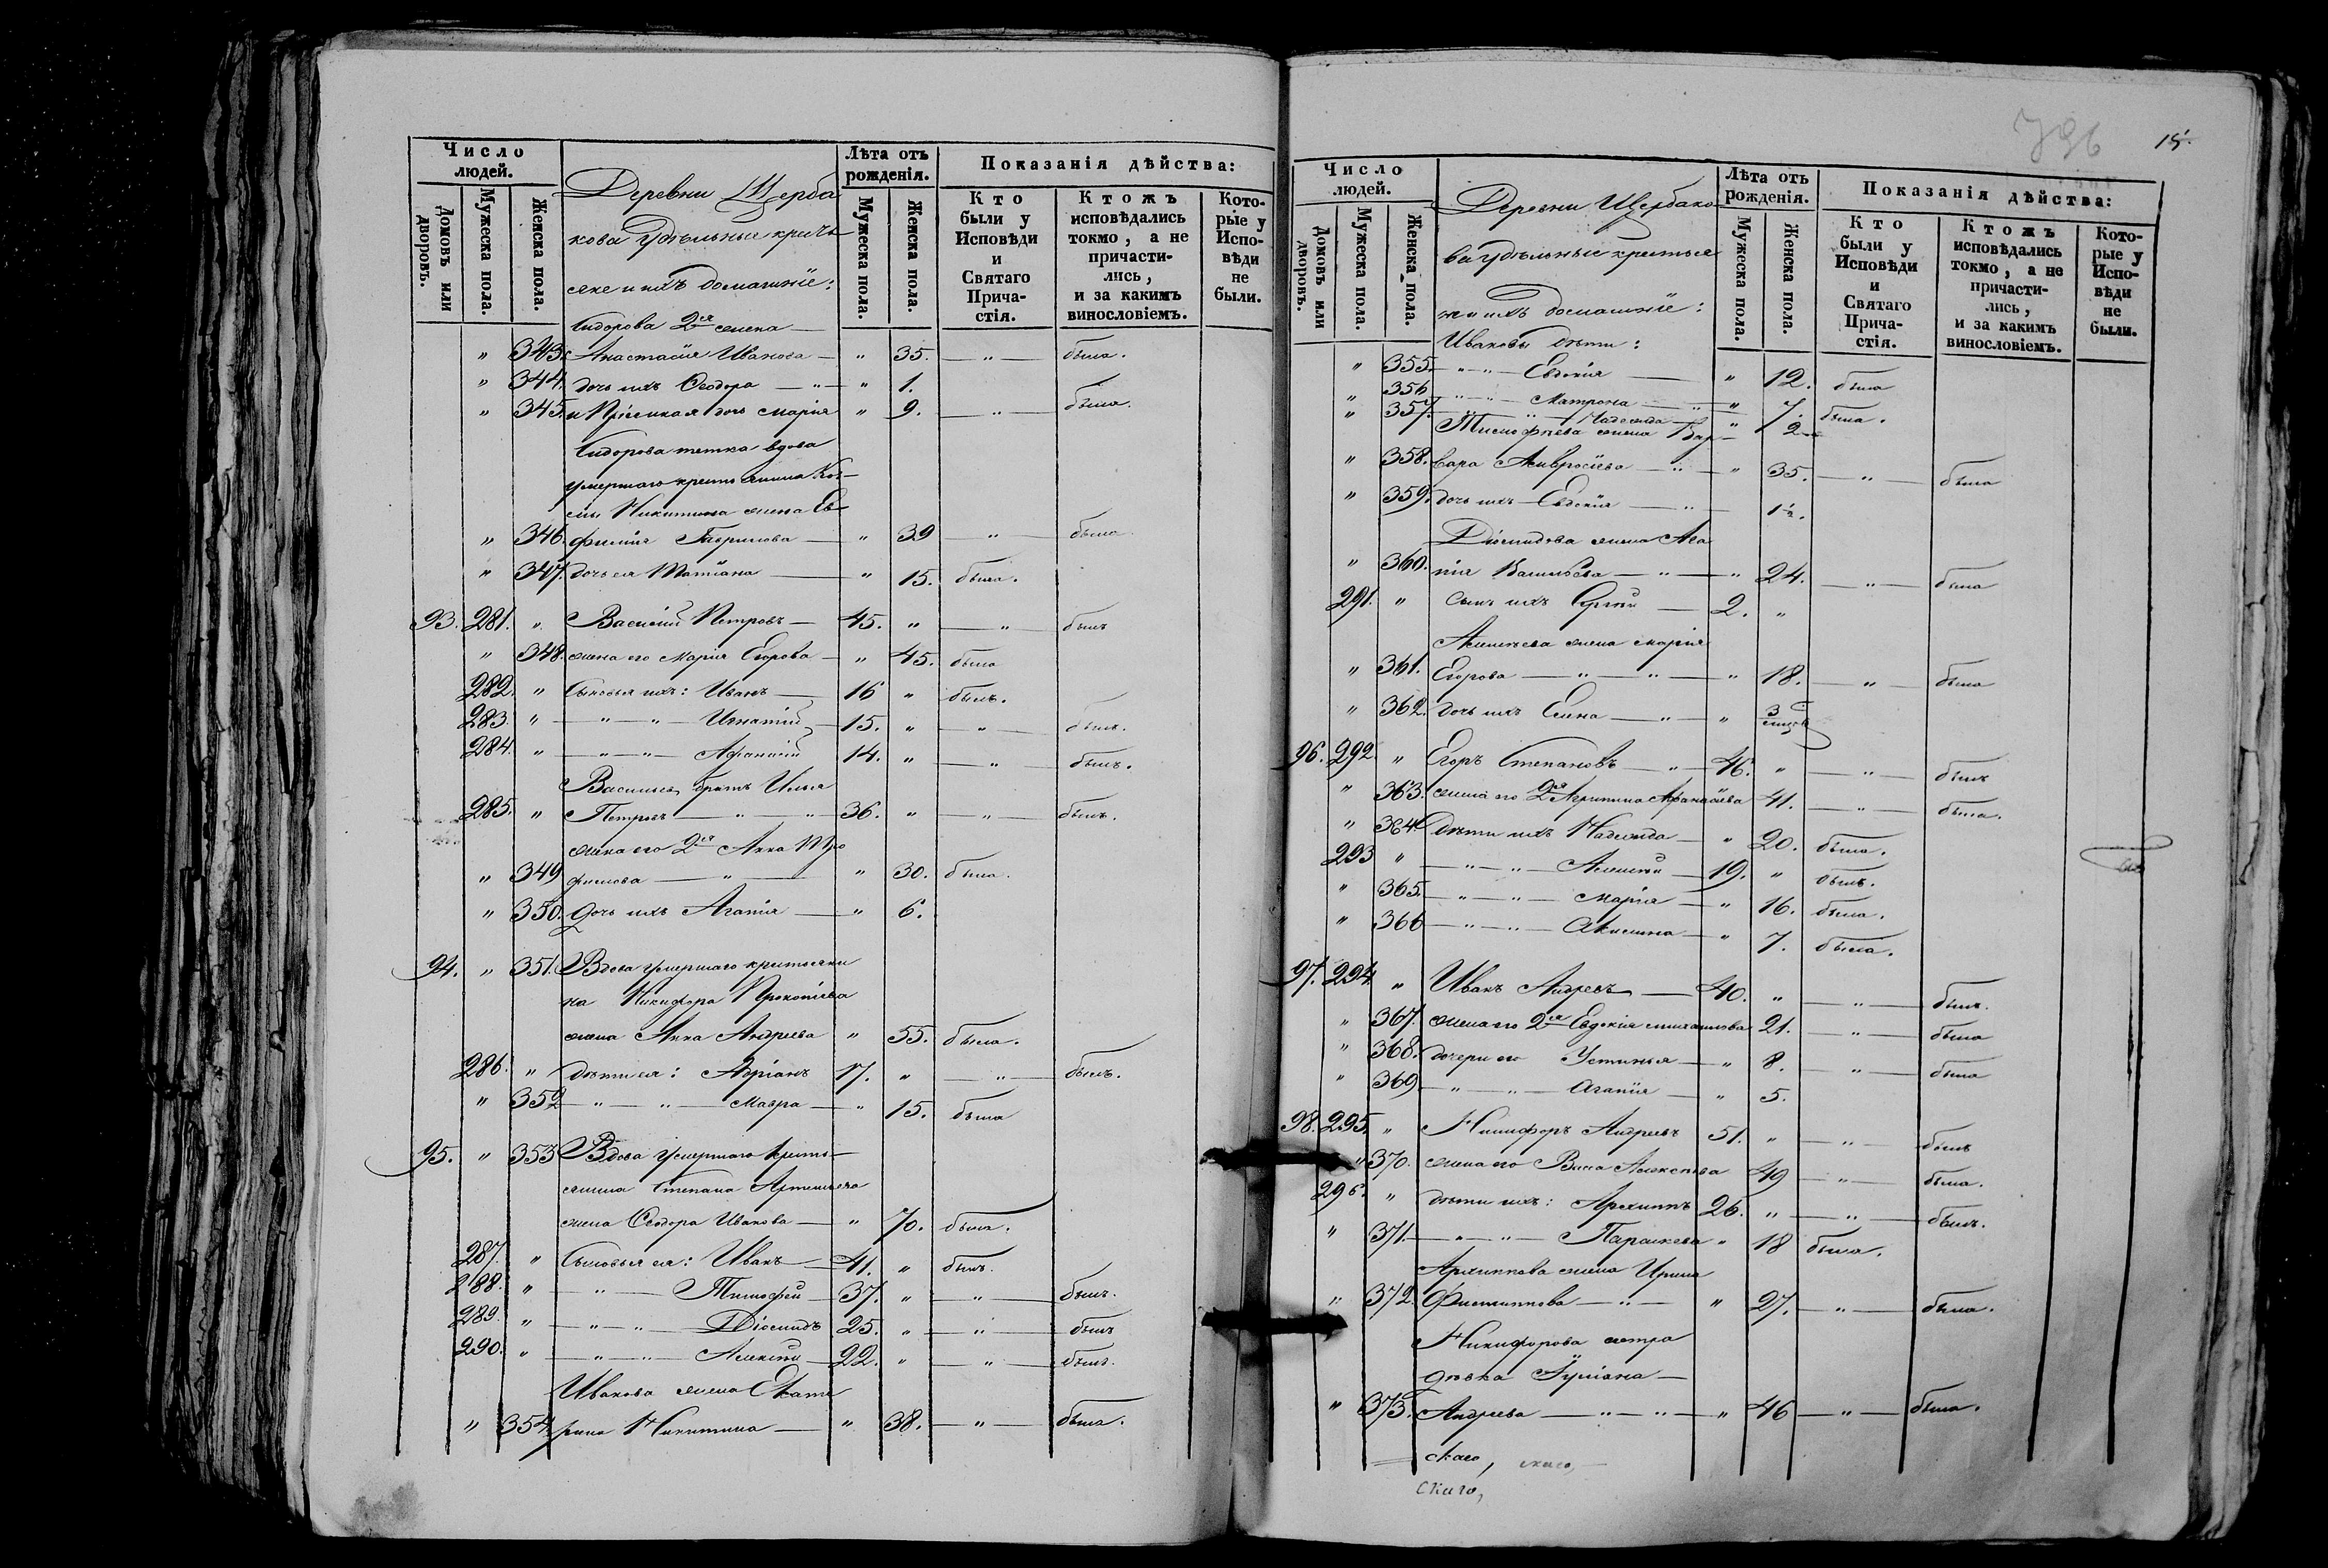 Число людей.
Домовъ или дворовъ.
Мужеска пола.
Женска пола.
Деревни Щерба
кова удѣльные кресть
яне и ихъ домашніе:
Лѣта отъ рожденія.
Мужеска пола.
Женска пола.
Показанія дѣйства:
Кто были у Исповѣди и Святаго Прича-стія.
Ктожъ исповѣдались токмо, а не причасти-лись, и за какимъ винословіемъ.
Кото-рые у Испо-вѣди не были.
Сидорова 2ая жена —
" 343. Анастасія Иванова — " 35. — " — была.
" 344. дочь ихъ Ѳеодора — " — " 1.
" 345. и дочь Марія " 9. — " — была.
Сидорова тетка вдова
умершаго крестьянина Коз-
мы Никитина жена Ев
" 346. фимія Гаврилова — " 39 — " — была.
" 347. дочь ея Татіана — " 15. была.
93. 281. " Василій Петровъ — 45. " — " — былъ
" 348. жена его Марія Егорова — " 45. была
282. " Сыновья ихъ: Иванъ — 16 " былъ.
283. " — " — " — Игнатій — 15. " — " — былъ.
284. " — " — " — Афанасій 14. " — " — былъ.
Васильевъ братъ Илья
285. " Петровъ — " — " 36. " — " — былъ.
жена его 2ая Анна Тро
" 349 фимова — " — " 30. была.
" 350. дочь ихъ Агапія — " 6.
94. " 351. Вдова умершаго крестьяни
на Никифора Прокопіева
жена Анна Андреева " 55. была.
286. " дѣти ея: Адріанъ 17. " — " — былъ.
" 352 — " — " — Мавра — " 15. была
95. " 353 Вдова умершаго кресть-
янина Степана Артемьева
жена Ѳеодора Иванова — " 70. была.
287. " Сыновья ея: Иванъ — 41. " былъ.
288. " — " — Тимофей — 37. " — " — былъ.
289. " — " — " Діомидъ 25. " — " — былъ
290. " — " — " — Алексѣй — 22. " — " — былъ.
Иванова жена Екате
" 354. рина Никитина — " 38. — " — была.
15.
Число людей.
Домовъ или дворовъ.
Мужеска пола.
Женска пола.
Деревни Щербако
ва удѣльные крестья
не и ихъ домашніе:
Лѣта отъ рожденія.
Мужеска пола.
Женска пола.
Показанія дѣйства:
Кто были у Исповѣди и Святаго Прича-стія.
Ктожъ исповѣдались токмо, а не причасти-лись, и за какимъ винословіемъ.
Кото-рые у Испо-вѣди не были.
Ивановы дѣти:
" 355. — " — " — Евдокія — " 12. была
" 356 " — " Матрона — " — " 7. была.
" 357. — " — " — Надежда — " 2
Тимофеева жена Вар-
" 358. вара Амвросіева — " — " 35. — " — была
" 359. дочь ихъ — Евдокія — " — 1½.
Діомидова жена Ага
" 360. пія Васильева — " — " 24. — " — была
291. " Сынъ ихъ Сергій — 2. "
Алексѣева жена Марія
" 361. Егорова — " — " — " 18. — " — была
" 362. дочь ихъ Елена — " — " 3
96. 292. " Егоръ Степановъ — " — 46. " — " — былъ
" 363. жена его 2ая Агрипина Афанасіева 41. — " — была.
" 364 Дѣти ихъ Надежда — " 20. была.
293 " — " — " — Алексѣй — 19. " былъ.
" 365. — " — " — Марія — " 16. была.
" 366 — " — " — Акилина — " 7. была.
97. 294 " Иванъ Андреевъ — 40. " — " — былъ.
" 367. жена его 2ая Евдокія Михаилова 21. — " — была
" 368. дочери его Устинья — " 8. — " — была
" 369 — " — " — Агапія — " 5.
98. 295. " Никифоръ Андреевъ 51. " — " — былъ
" 370. жена его Васа Алексѣева 49 — " — была.
296. " дѣти ихъ: Архиппъ 26. " — " — былъ.
" 371. — " — " — Параскева " 18 была.
Архиппова жена Ирина
" 372. Филиппова — " — " 27. — " — была.
Никифорова сестра
дѣвка Іуліана —
" 373. Андреева — " — " — " 46 — " — была.
скаго, скаго,
скаго,